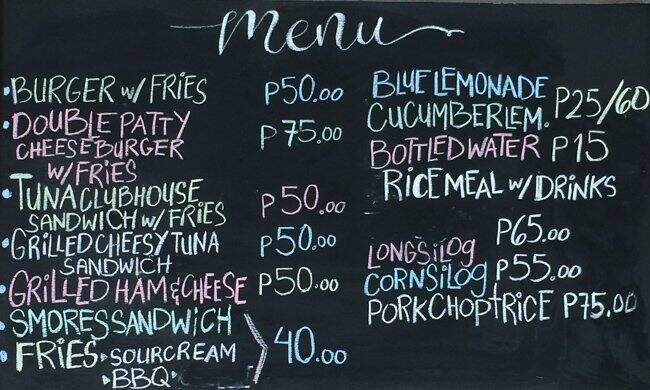 menu
• BURGER w/ FRIES P50.00
• DOUBLE PATTY P75.00
CHEESEBURGER
w/ FRIES
• TUNA CLUBHOUSE P50.00
SANDWICH w/ FRIES
• GRILLED CHEESY TUNA P50.00
SANDWICH
• GRILLED HAM & CHEESE P50.00
• SMORES SANDWICH
• FRIES • SOURCREAM 40.00
• BBQ
BLUE LEMONADE
CUCUMBER LEM. P25/60
BOTTLED WATER P15
RICE MEAL w/ DRINKS
LONGSILOG P65.00
CORNSILOG P55.00
PORKCHOP + RICE P75.00